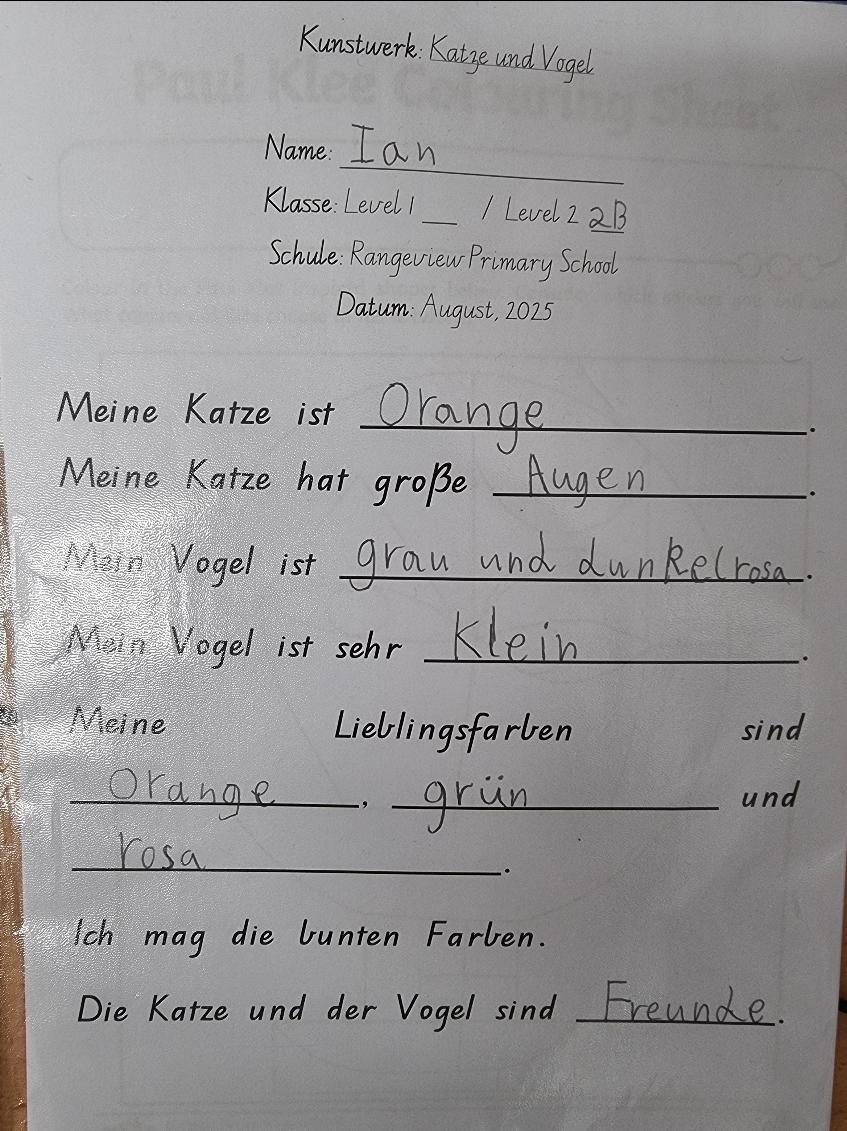 Kunstwerk: Katze und Vogel
Paul Klee Colouring Sheet
Name: Ian
Klasse: Level 1 __ / Level 2 2B
Schule: Rangeview Primary School
Datum: August, 2025
Meine Katze ist Orange.
Meine Katze hat große Augen.
Mein Vogel ist grau und dunkelrosa.
Mein Vogel ist sehr klein.
Meine Lieblingsfarben sind
Orange, grün und
rosa.
Ich mag die bunten Farben.
Die Katze und der Vogel sind Freunde.